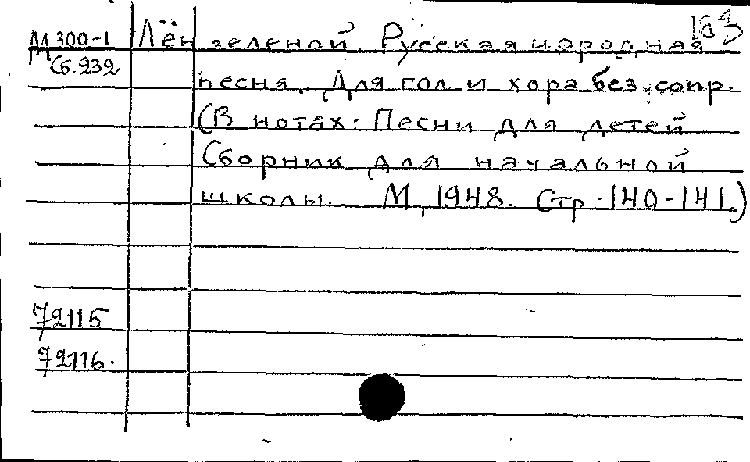 М 300-1 Лён зеленой. Русская народная
М Сб.232 песня. Для гол и хора без сопр.
(В нотах: Песни для детей
Сборник для начальной
школы. М, 1948. Стр. 140-141.)
72115
72116.